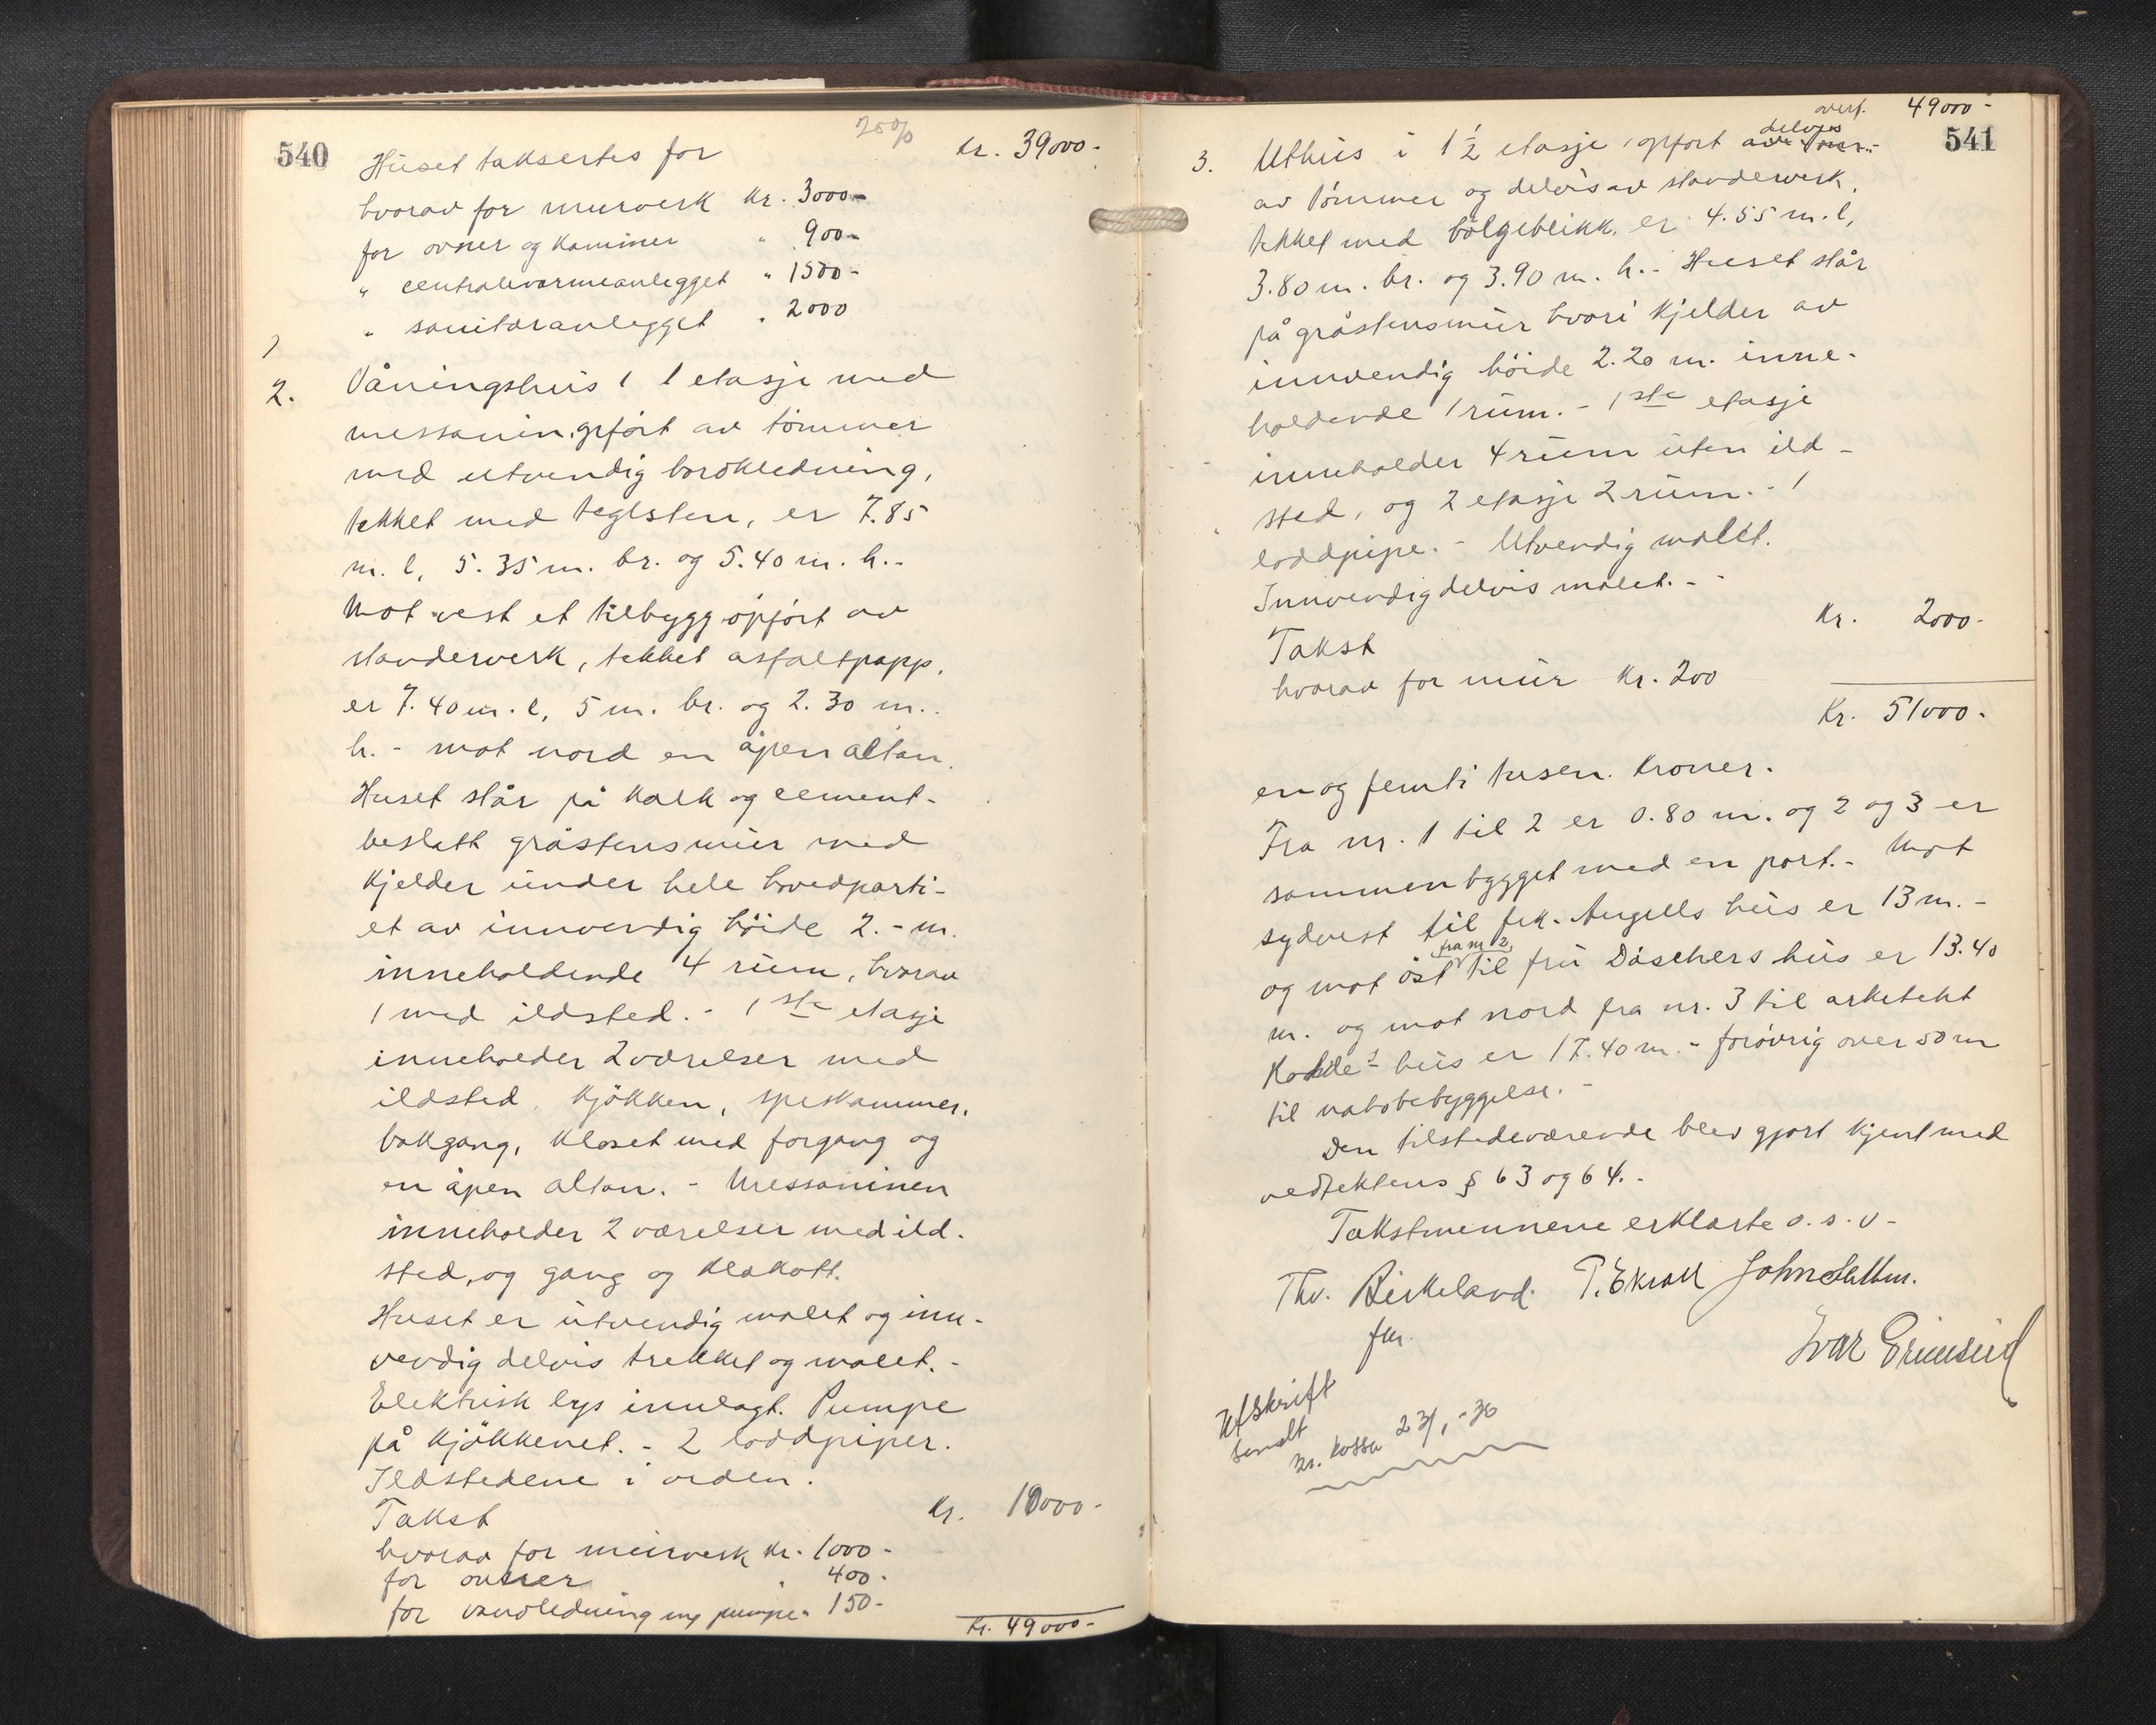 540
20%
Huset taksertes for Kr. 39000.-
hvorav for murverk Kr. 3000.-
for ovner og kaminer " 900.-
" centralvarmeanlegget " 1500.-
" sanitæranlegget " 2000
2. Våningshus i 1 etasje med
messanin, opført av tømmer
med utvendig bordkledning,
tekket med teglsten, er 7.85
m. l, 5.35 m. br. og 5.40 m. h.-
Mot vest et tilbygg opført av
stenderverk, tekket asfaltpapp,
er 7.40 m. l, 5 m. br. og 2.30 m.
h. - mot nord en åpen altan.
Huset står på kalk og cement-
beslått gråstensmur med
kjelder under hele hovedparti-
et av innvendig höide 2.- m.
inneholdende 4 rum, hvorav
1 med ildsted. - 1ste etasje
inneholder 2 værelser med
ildsted, kjökken, spiskammer,
bakgang, kloset med forgang og
en åpen altan. - Messaninen
inneholder 2 værelser med ild-
sted, og gang og klækott.
Huset er utvendig malet og inn-
vendig delvis trekket og malet.-
Elektrisk lys innlagt. Pumpe
på kjökkenet. - 2 loddpiper.
Ildstedene i orden.
Takst Kr. 10000.-
hvorav for murverk Kr. 1000.-
for ovner " 400.-
for vandledning og pumpe " 150.-
Kr. 49000.-
541
overf. 49000.-
3. Uthus i 1½ etasje, opfört delvis
av tömmer og delvis av stenderverk,
tekket med bölgeblikk, er 4.55 m. l,
3.80 m. br. og 3.90 m. h.- Huset står
på gråstensmur hvori kjelder av
innvendig höide 2.20 m. inne-
holdende 1 rum. - 1ste etasje
inneholder 4 rum uten ild-
sted, og 2 etasje 2 rum. - 1
loddpipe. - Utvendig malet.
Innvendig delvis malet. -
Takst Kr. 2000.-
hvorav for mur Kr. 200
Kr. 51000.-
en og femti tusen kroner.
Fra nr. 1 til 2 er 0.80 m. og 2 og 3 er
sammenbygget med en port. - Mot
sydvest til frk. Angells hus er 13 m.-
og mot öst fra nr 2, til fru Däschers hus er 13.40
m. og mot nord fra nr. 3 til arkitekt
hus er 17.40 m. - forövrig over 50 m
til nabobebyggelse. -
Den tilstedeværende blev gjort kjent med
vedtektens § 63 og 64. -
Takstmennene erklærte o. s. v.-
Thv. Birkeland. P. Ekroll John
fm. Ivar Grimsrud
Utskrift
sendt
kassa 23/1-36